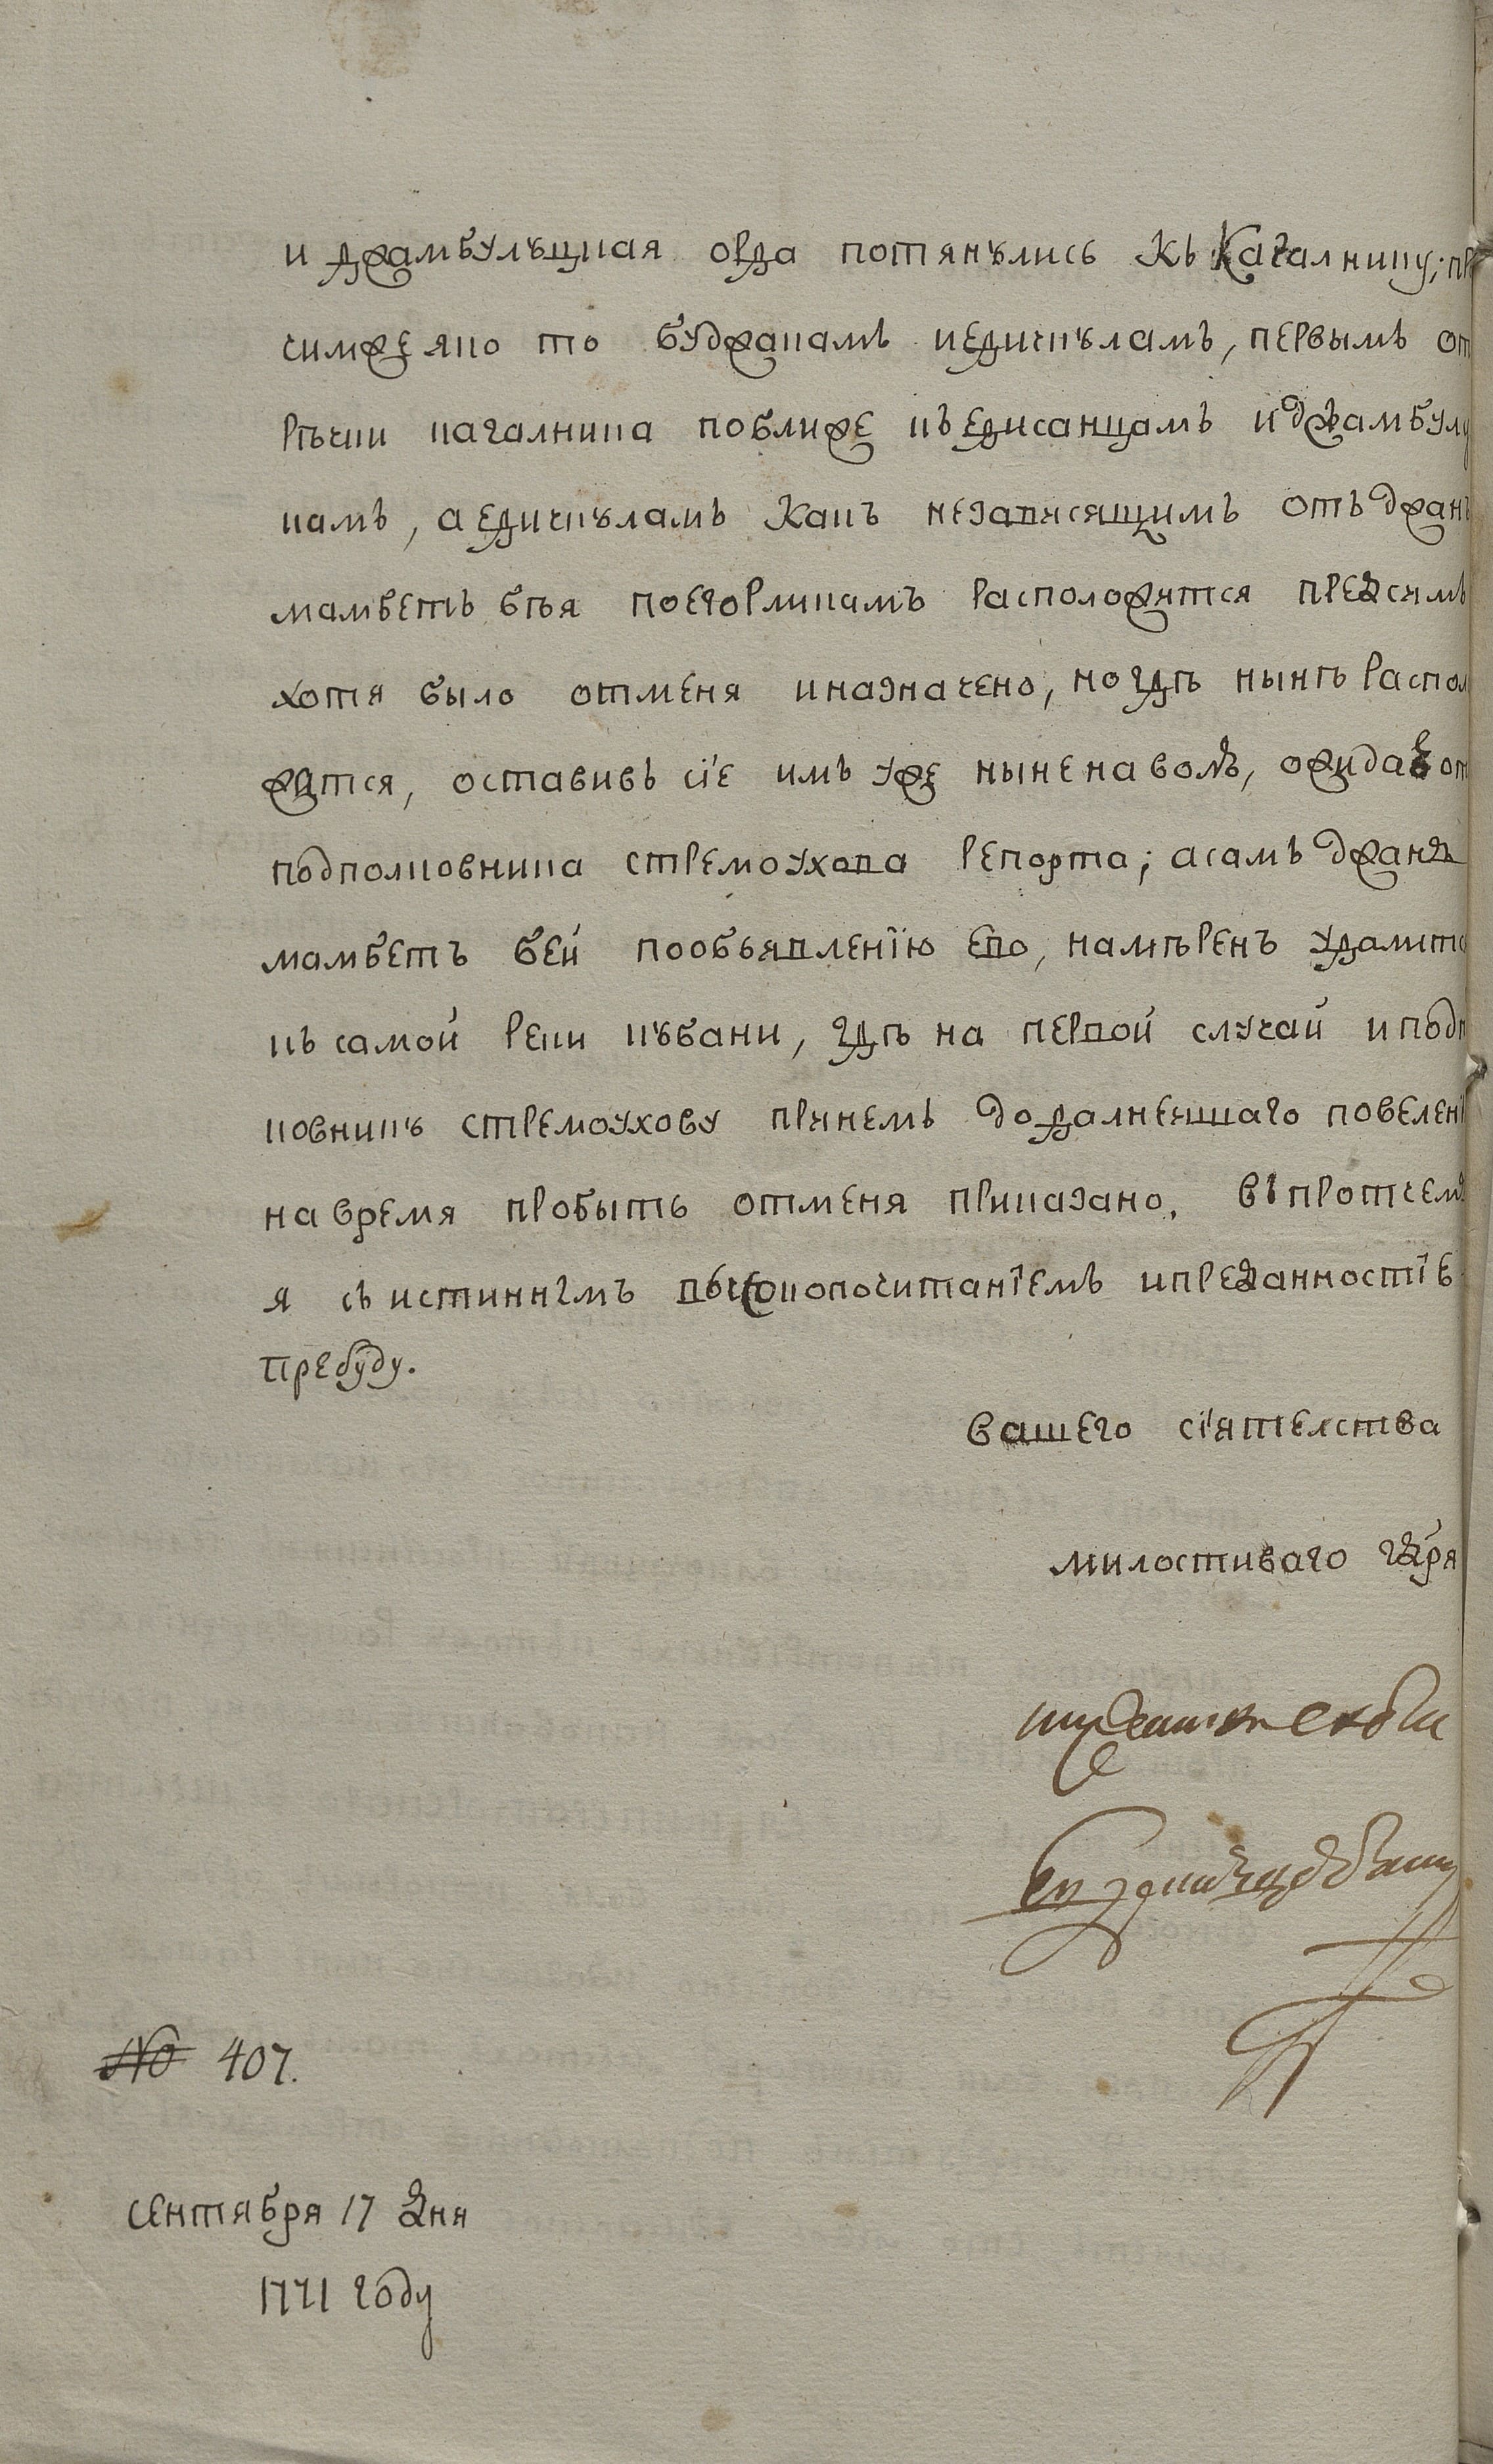 и джамбулъцкая орда потянулись къ Качалнику; пр
чимже яко то буджакамъ иедичкуламъ, первымъ от
рѣчки качалника поближе къ едисанцамъ и джамбулу
камъ, а едичкуламъ какъ независящимъ отъ джанъ
мамбетъ бѣя поегорликамъ расположится предсимъ
хотя было отменя иназначено, но гдѣ нынѣ распол
жатся, оставивъ сїе имъ уже нынѣ наволѣ, ожидаю от
подполковника стремоухова репорта; асамъ джанъ
мамбетъ бей пообъявленїю ево, намѣренъ удалитс
къ самой реки кубани, гдѣ на первой случай и подп
ковнику стремоухову принемъ додалнейшаго повелени
на время пробыть отменя приказано. въпротчемъ
я съ истиннымъ высокопочитанїемъ ипреданностїе
пребуду.
вашего сїятелства
милостиваго гдря
№ 407.
сентября 17 дня
1771 году